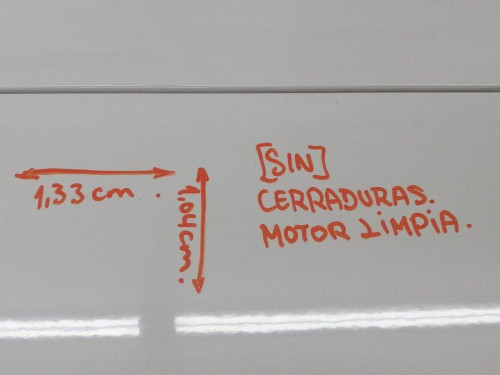 1,33 cm.
1,04 cm.
[SIN]
CERRADURAS.
MOTOR LIMPIA.